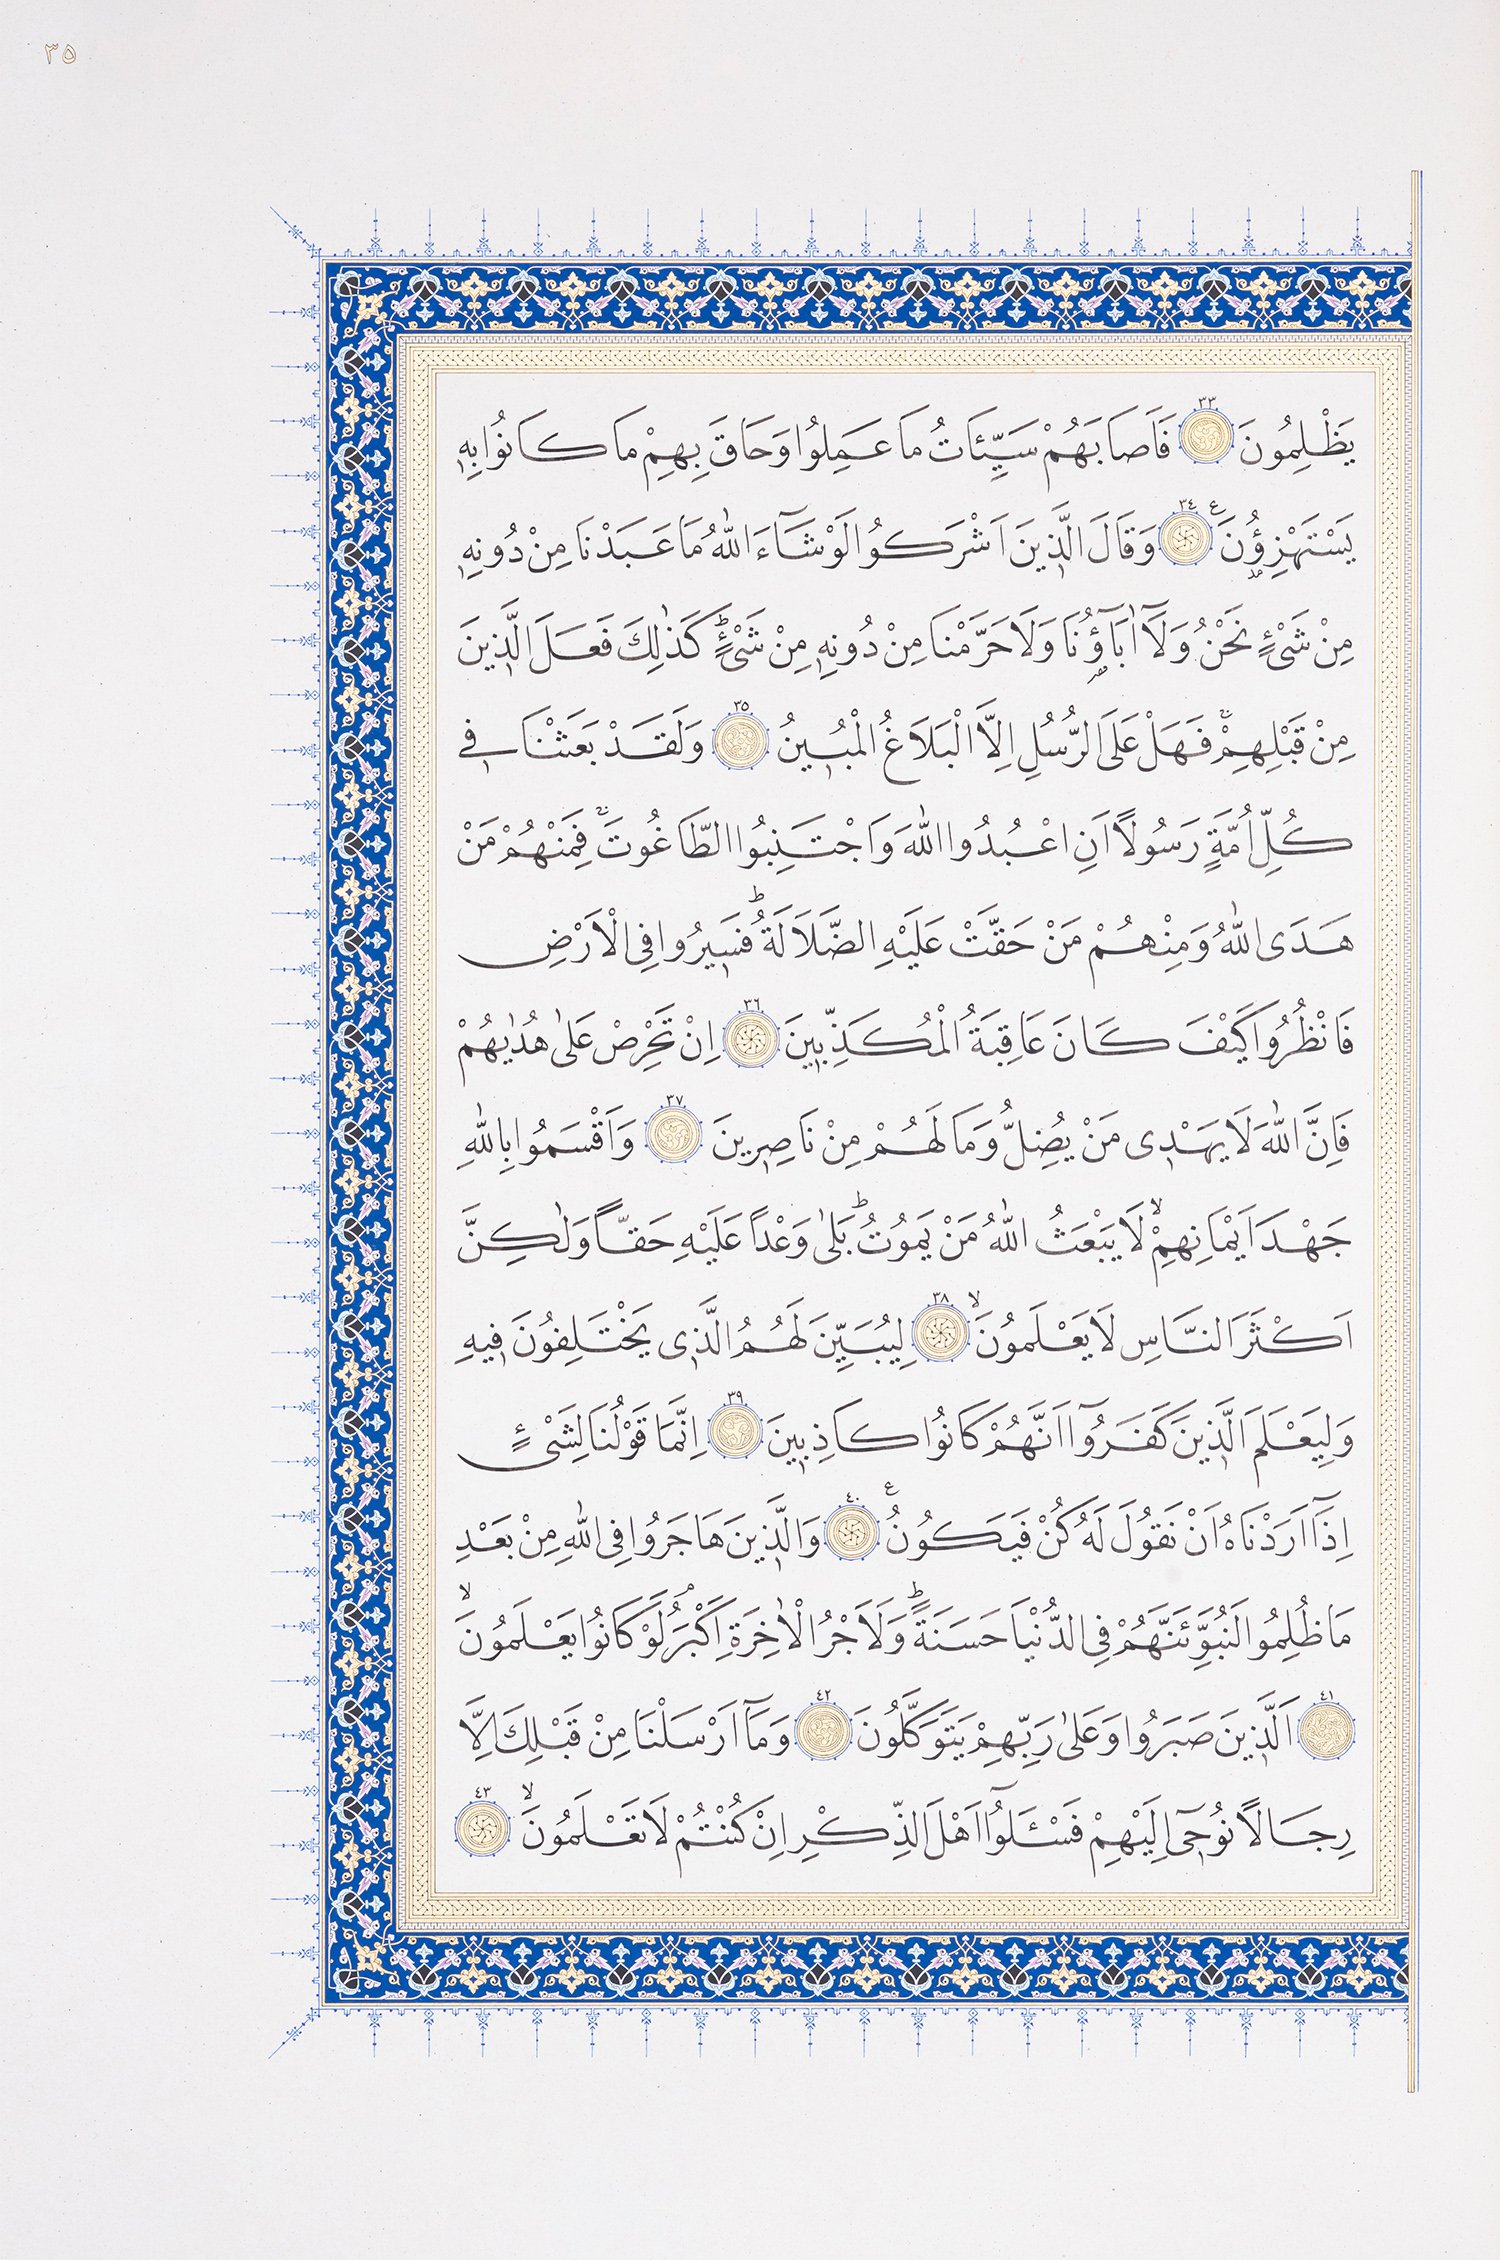 ٣٥
يَظْلِمُونَ ٣٣ فَاَصَابَهُمْ سَيِّـَٔاتُ مَا عَمِلُوا وَحَاقَ بِهِمْ مَا كَانُوا بِهٖ
يَسْتَهْزِؤُ۫نَ ع ٣٤ وَقَالَ الَّذٖينَ اَشْرَكُوا لَوْ شَٓاءَ اللّٰهُ مَا عَبَدْنَا مِنْ دُونِهٖ
مِنْ شَیْءٍ نَحْنُ وَلَٓا اٰبَٓاؤُ۬نَا وَلَا حَرَّمْنَا مِنْ دُونِهٖ مِنْ شَیْءٍؕ كَذٰلِكَ فَعَلَ الَّذٖينَ
مِنْ قَبْلِهِمْۚ فَهَلْ عَلَى الرُّسُلِ اِلَّا الْبَلَاغُ الْمُبٖينُ ٣٥ وَلَقَدْ بَعَثْنَا فٖى
كُلِّ اُمَّةٍ رَسُولًا اَنِ اعْبُدُوا اللّٰهَ وَاجْتَنِبُوا الطَّاغُوتَۚ فَمِنْهُمْ مَنْ
هَدَى اللّٰهُ وَمِنْهُمْ مَنْ حَقَّتْ عَلَيْهِ الضَّلَالَةُؕ فَسٖيرُوا فِى الْاَرْضِ
فَانْظُرُوا كَيْفَ كَانَ عَاقِبَةُ الْمُكَذِّبٖينَ ٣٦ اِنْ تَحْرِصْ عَلٰى هُدٰيهُمْ
فَاِنَّ اللّٰهَ لَا يَهْدٖى مَنْ يُضِلُّ وَمَا لَهُمْ مِنْ نَاصِرٖينَ ٣٧ وَاَقْسَمُوا بِاللّٰهِ
جَهْدَ اَيْمَانِهِمْۙ لَا يَبْعَثُ اللّٰهُ مَنْ يَمُوتُؕ بَلٰى وَعْدًا عَلَيْهِ حَقًّا وَلٰكِنَّ
اَكْثَرَ النَّاسِ لَا يَعْلَمُونَۙ ٣٨ لِيُبَيِّنَ لَهُمُ الَّذٖى يَخْتَلِفُونَ فٖيهِ
وَلِيَعْلَمَ الَّذٖينَ كَفَرُٓوا اَنَّهُمْ كَانُوا كَاذِبٖينَ ٣٩ اِنَّمَا قَوْلُنَا لِشَیْءٍ
اِذَٓا اَرَدْنَاهُ اَنْ نَقُولَ لَهُ كُنْ فَيَكُونُ ع ٤٠ وَالَّذٖينَ هَاجَرُوا فِى اللّٰهِ مِنْ بَعْدِ
مَا ظُلِمُوا لَنُبَوِّئَنَّهُمْ فِى الدُّنْيَا حَسَنَةًؕ وَلَاَجْرُ الْاٰخِرَةِ اَكْبَرُۢ لَوْ كَانُوا يَعْلَمُونَۙ
٤١ اَلَّذٖينَ صَبَرُوا وَعَلٰى رَبِّهِمْ يَتَوَكَّلُونَ ٤٢ وَمَٓا اَرْسَلْنَا مِنْ قَبْلِكَ اِلَّا
رِجَالًا نُوحٖٓى اِلَيْهِمْ فَسْـَٔلُٓوا اَهْلَ الذِّكْرِ اِنْ كُنْتُمْ لَا تَعْلَمُونَۙ ٤٣